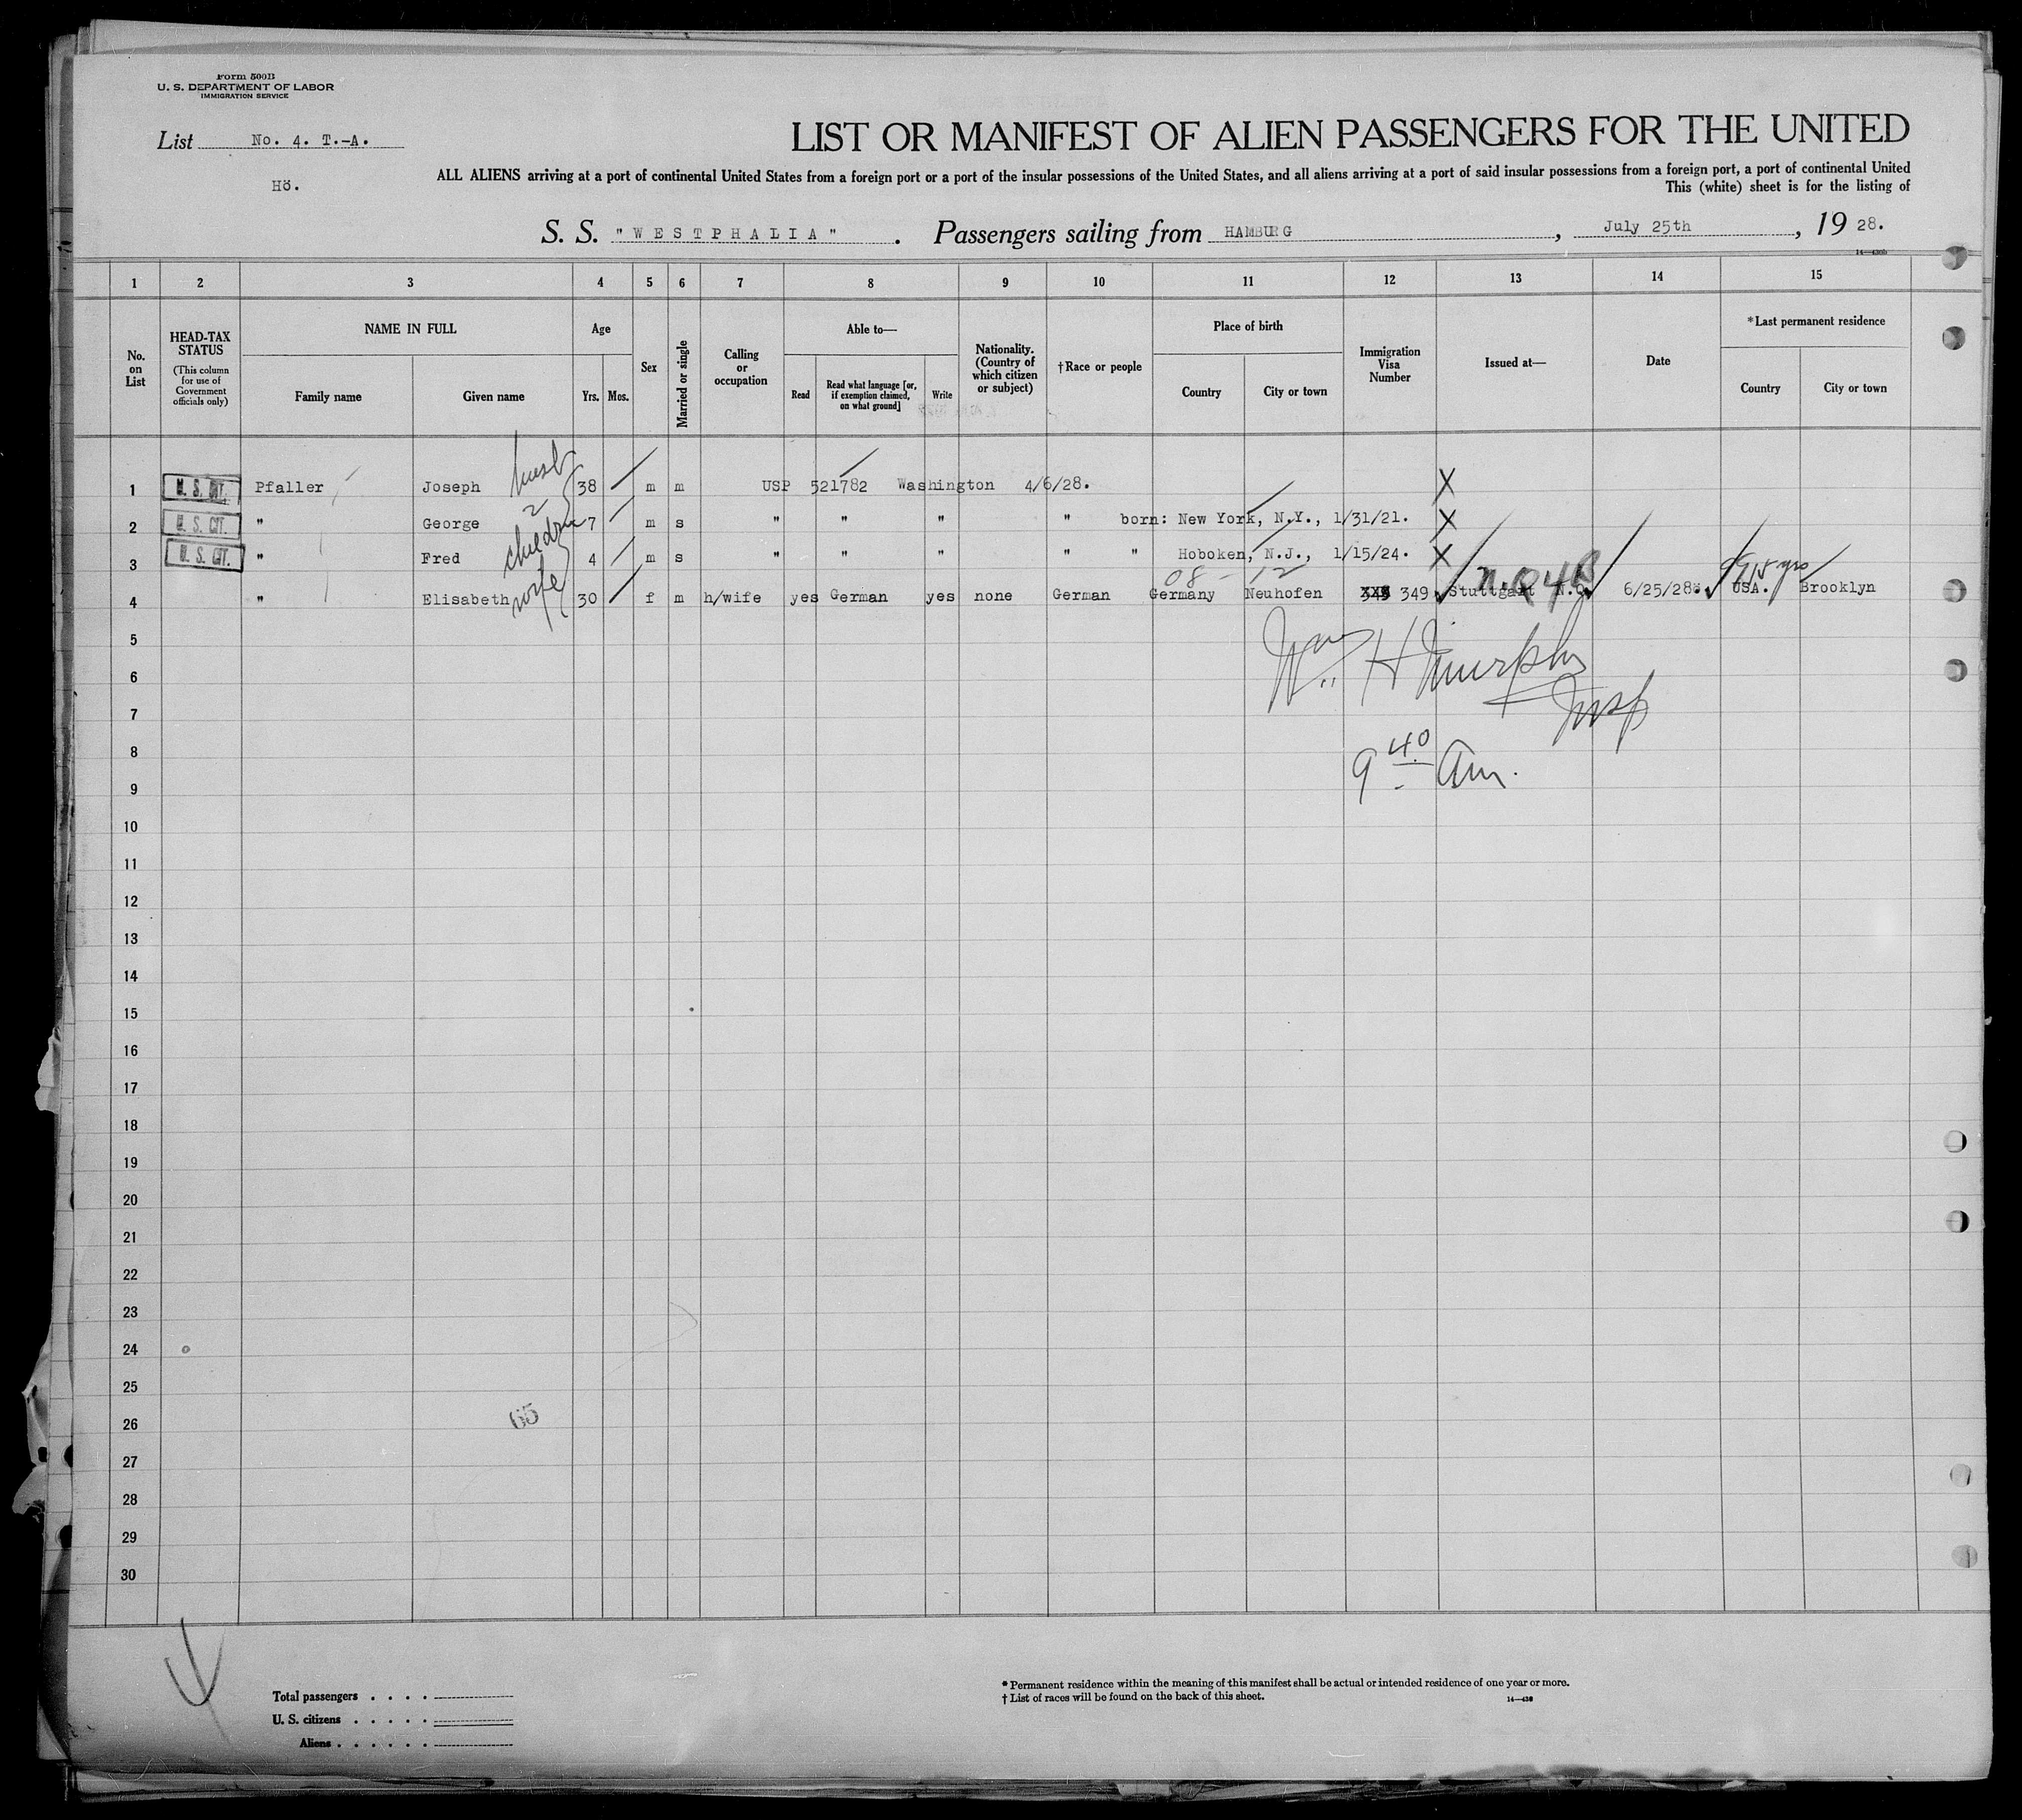 Form 500B
U. S. DEPARTMENT OF LABOR
IMMIGRATION SERVICE
List No. 4. T.-A.
Hö.
LIST OR MANIFEST OF ALIEN PASSENGERS FOR THE UNITED
ALL ALIENS arriving at a port of continental United States from a foreign port or a port of the insular possessions of the United States, and all aliens arriving at a port of said insular possessions from a foreign port, a port of continental United
This (white) sheet is for the listing of
S. S. "WESTPHALIA". Passengers sailing from HAMBURG, July 25th, 19 28.
1 2 3 4 5 6 7 8 9 10 11 12 13 14 15
No. on List
HEAD-TAX STATUS
(This column for use of Government officials only)
NAME IN FULL
Family name Given name
Age
Yrs. Mos.
Sex
Married or single
Calling or occupation
Able to—
Read
Read what language [or, if exemption claimed, on what ground]
Write
Nationality. (Country of which citizen or subject)
†Race or people
Place of birth
Country City or town
Immigration Visa Number
Issued at—
Date
*Last permanent residence
Country City or town
1 U. S. CIT. Pfaller Joseph husb 38 m m USP 521782 Washington 4/6/28. X
2 U. S. CIT. " George 2 children 7 m s " " " " born: New York, N.Y., 1/31/21. X
3 U. S. CIT. " Fred 4 m s " " " " " Hoboken, N.J., 1/15/24. X
08 - 12
4 " Elisabeth wife 30 f m h/wife yes German yes none German Germany Neuhofen 349 Stuttgart N.Q. 6/25/28 USA. Brooklyn
5
Wm. H Murphy
6
Insp
7
8
9 40 am.
9
10
11
12
13
14
15
16
17
18
19
20
21
22
23
24
25
26
65
27
28
29
30
Total passengers . . . .
U. S. citizens . . . . .
Aliens . . . . . .
* Permanent residence within the meaning of this manifest shall be actual or intended residence of one year or more.
† List of races will be found on the back of this sheet.
14—430